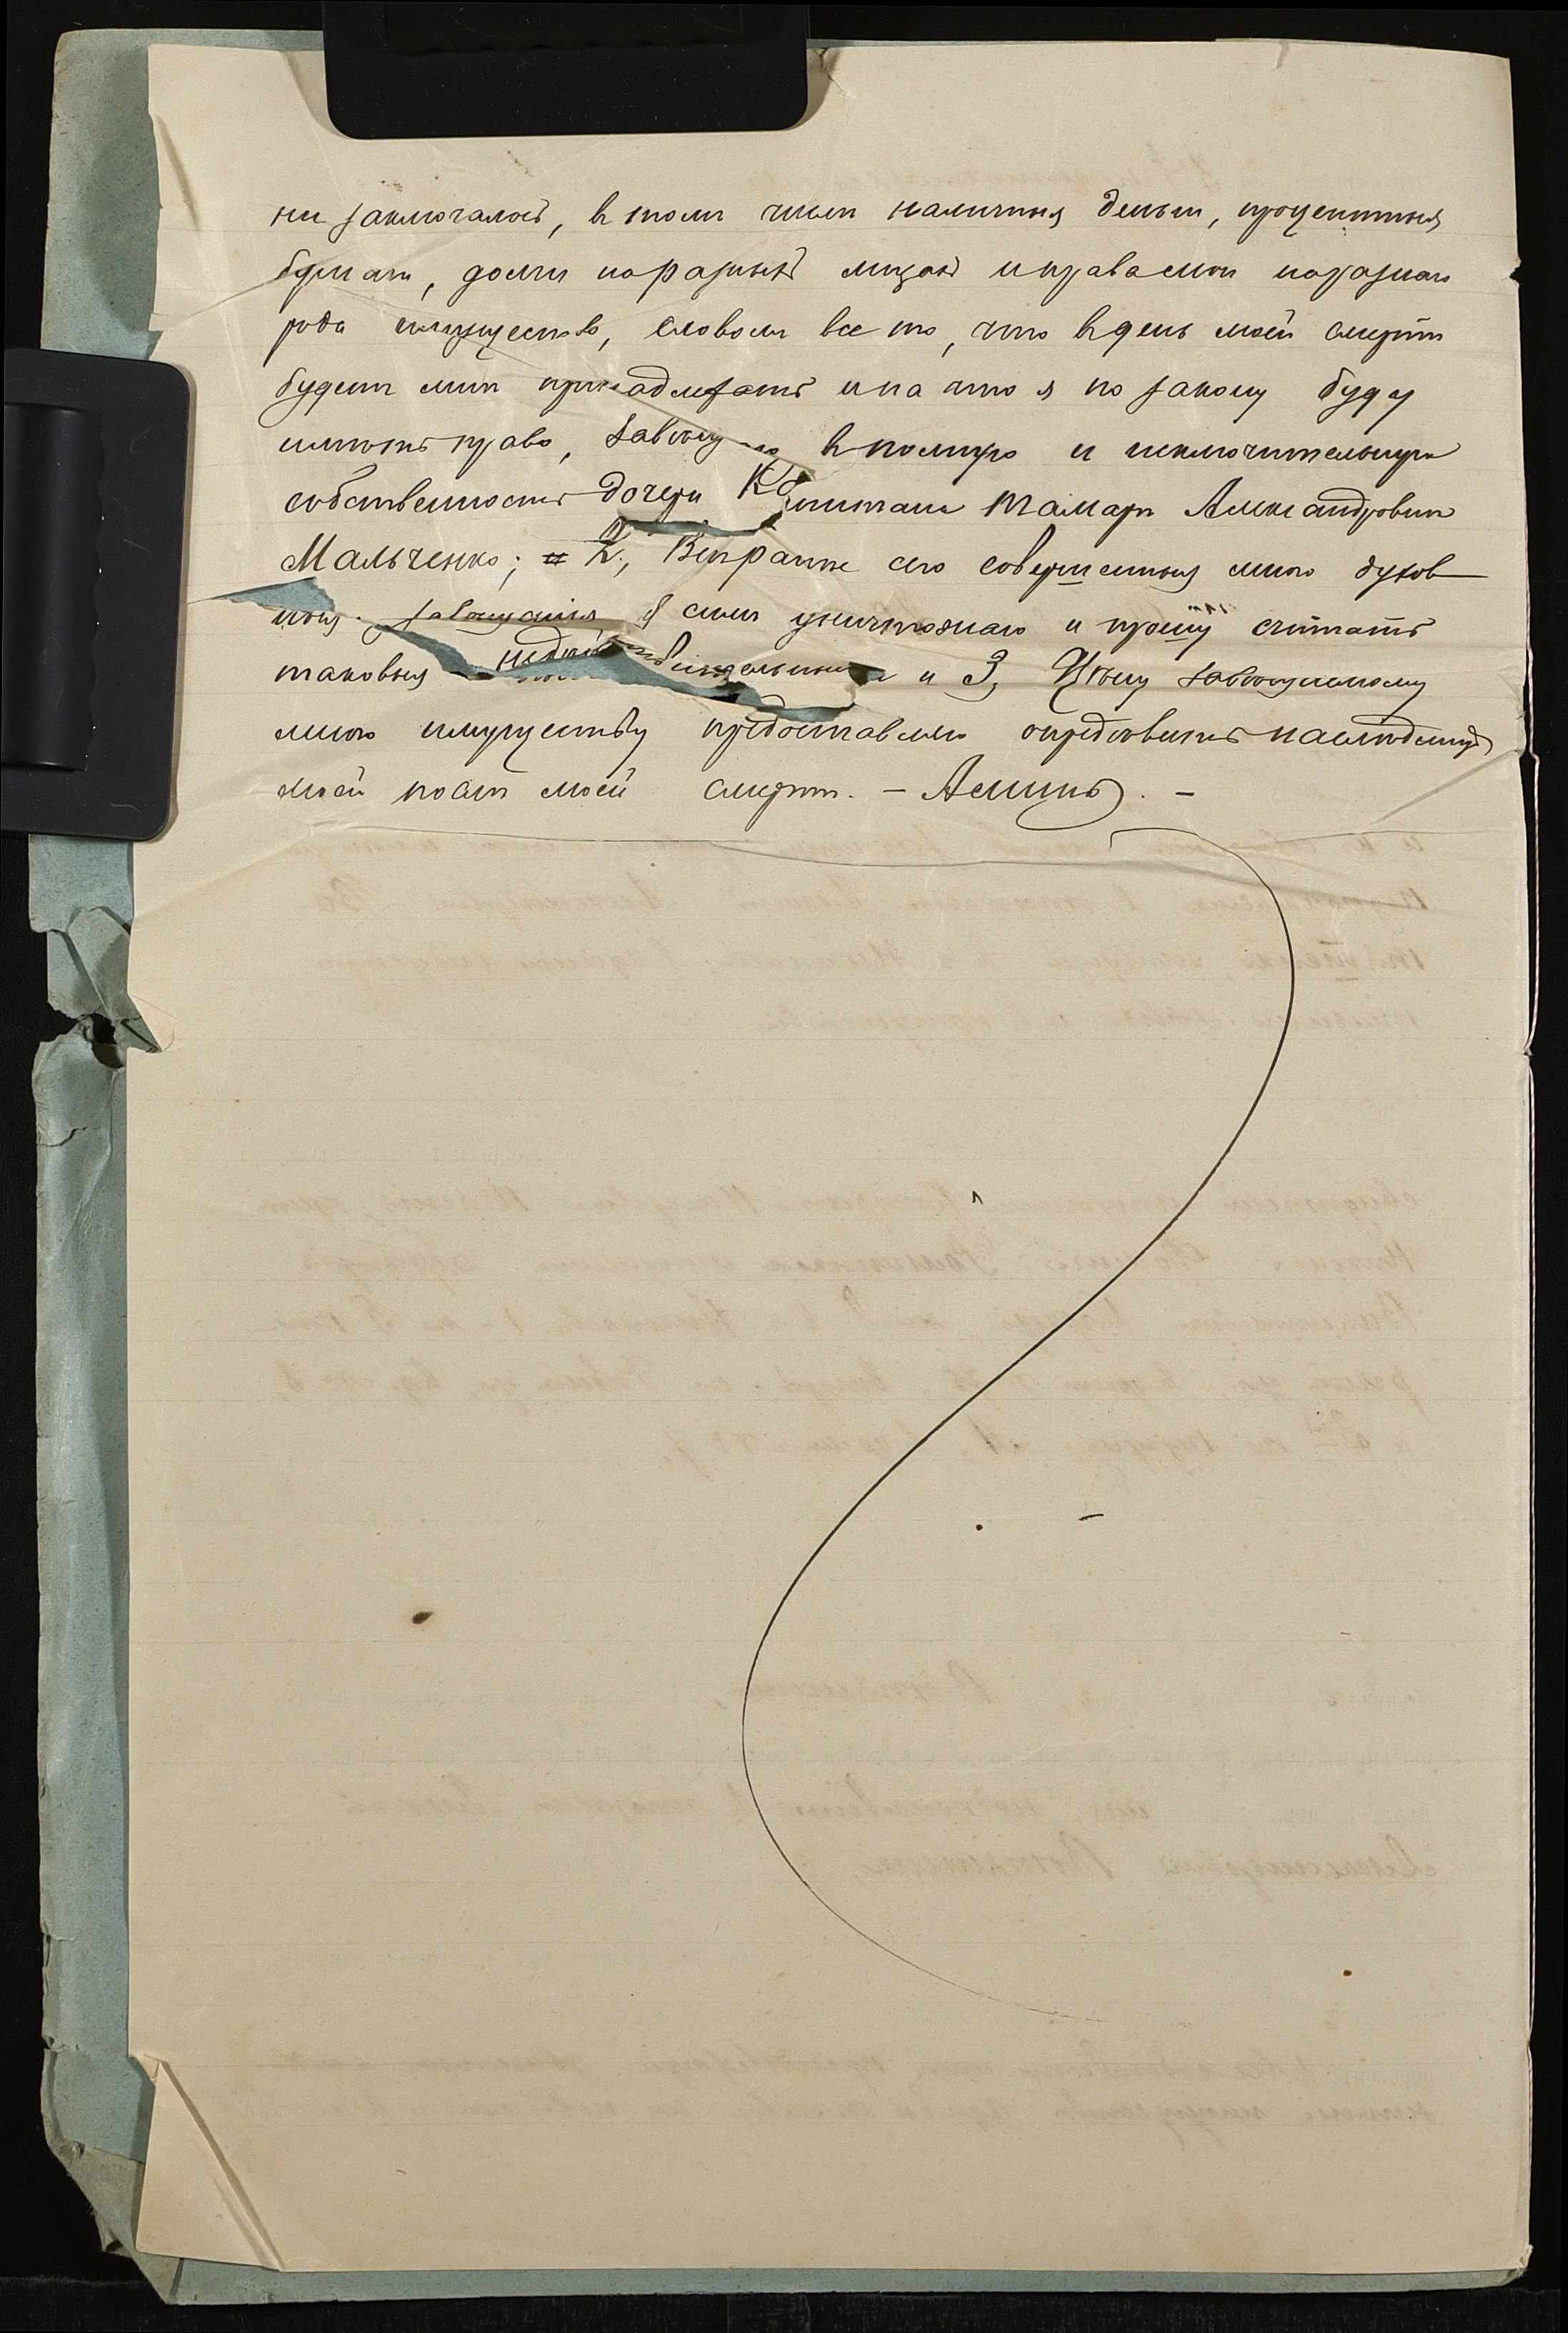 ни заключалось, въ томъ числѣ наличныя деньги, процентныя
бумаги, долги на разныхъ лицахъ и права мои на разнаго
рода имущество, словомъ все то, что въ день моей смерти
будетъ мнѣ принадлежать и на что я по закону буду
имѣть право, завѣщаю въ полную и исключительную
собственность дочери Капитана Тамарѣ Александровнѣ
Мальченко; 2, Всѣ ранѣе сего совершенныя мною духов
ныя завѣщанія я симъ уничтожаю и прошу считать
таковыя недѣйствительными и 3, Цѣну завѣщаемому
мною имуществу предоставляю опредѣлить наслѣдницѣ
моей послѣ моей смерти. – Аминь. –